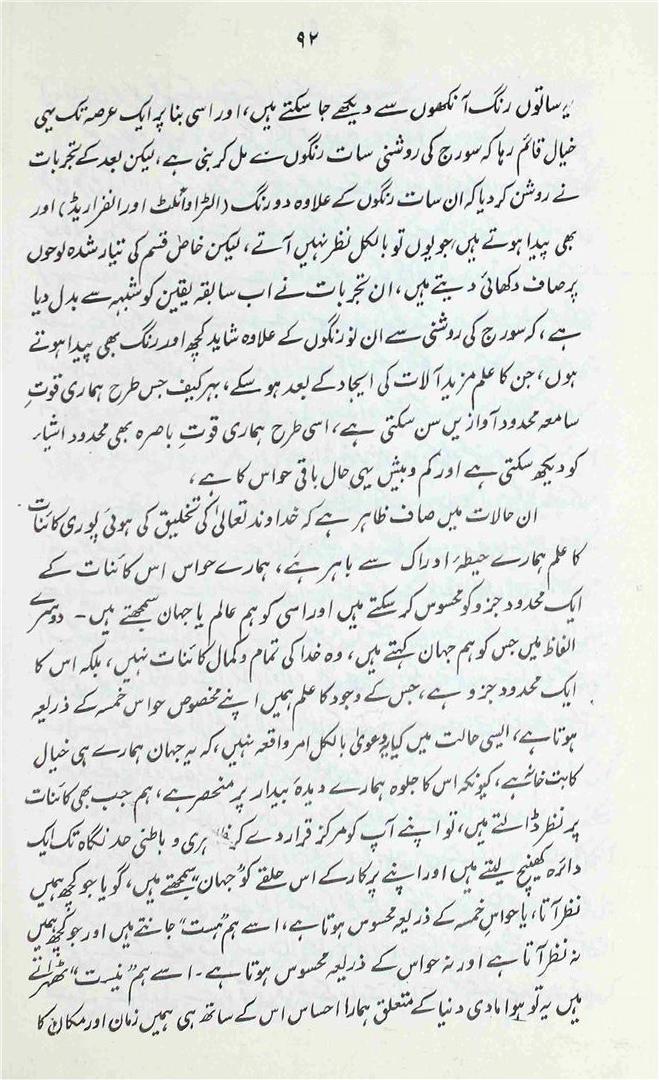 ۹۲
یہ ساتوں رنگ آنکھوں سے دیکھے جا سکتے ہیں، اور اسی بنا پر ایک عرصہ تک یہی
خیال قائم رہا کہ سورج کی روشنی سات رنگوں سے مل کر بنی ہے، لیکن بعد کے تجربات
نے روشن کر دیا کہ ان سات رنگوں کے علاوہ دو رنگ (الٹرا وائلٹ اور انفرا ریڈ) اور
بھی پیدا ہوتے ہیں، جو یوں تو بالکل نظر نہیں آتے، لیکن خاص قسم کی تیار شدہ لوحوں
پر صاف دکھائی دیتے ہیں، ان تجربات نے اب سابقہ یقین کو شبہہ سے بدل دیا
ہے، کہ سورج کی روشنی سے ان نو رنگوں کے علاوہ شاید کچھ اور رنگ بھی پیدا ہوتے
ہوں، جن کا علم مزید آلات کی ایجاد کے بعد ہو سکے، بہر کیف جس طرح ہماری قوتِ
سامعہ محدود آوازیں سن سکتی ہے، اسی طرح ہماری قوتِ باصرہ بھی محدود اشیاء
کو دیکھ سکتی ہے اور کم و بیش یہی حال باقی حواس کا ہے،
ان حالات میں صاف ظاہر ہے کہ خداوند تعالیٰ کی تخلیق کی ہوئی پوری کائنات
کا علم ہمارے حیطۂ ادراک سے باہر ہے، ہمارے حواس اس کائنات کے
ایک محدود جزو کو محسوس کر سکتے ہیں اور اسی کو ہم عالم یا جہان سمجھتے ہیں۔ دوسرے
الفاظ میں جس کو ہم جہان کہتے ہیں، وہ خدا کی تمام و کمال کائنات نہیں، بلکہ اس کا
ایک محدود جزو ہے، جس کے وجود کا علم ہمیں اپنے مخصوص حواس خمسہ کے ذریعہ
ہوتا ہے، ایسی حالت میں کیا یہ دعویٰ بالکل امر واقعہ نہیں، کہ یہ جہان ہمارے ہی خیال
کا بت خانہ ہے، کیونکہ اس کا جلوہ ہمارے دیدۂ بیدار پر منحصر ہے، ہم جب بھی کائنات
پر نظر ڈالتے ہیں، تو اپنے آپ کو مرکز قرار دے کر ظاہری و باطنی حد نگاہ تک ایک
دائرہ کھینچ لیتے ہیں اور اپنے پرکار کے اس حلقے کو "جہان" سمجھتے ہیں، گویا جو کچھ ہمیں
نظر آتا، یا حواس خمسہ کے ذریعہ محسوس ہوتا ہے، اسے ہم "ہست" جانتے ہیں اور جو کچھ ہمیں
نہ نظر آتا ہے اور نہ حواس کے ذریعہ محسوس ہوتا ہے۔ اسے ہم "نیست" ٹھہراتے
ہیں یہ تو ہوا مادی دنیا کے متعلق ہمارا احساس اس کے ساتھ ہی ہمیں زمان اور مکان کا